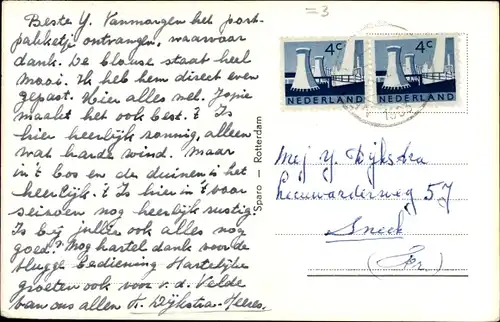 = 3
Beste Y. Vanmorgen het post-
pakketje ontvangen, waarvoor
dank. De blouse staat heel
mooi. Ik heb hem direct even
gepast. Hier alles wel. Jopie
maakt het ook best. 't Is
hier heerlijk zonnig, alleen
wat harde wind. Maar
in 't bos en de duinen is het
heerlijk. 't Is hier in 't voor
seizoen nog heerlijk rustig.
Is bij jullie ook alles nog
goed? Nog hartel dank voor de
vlugge bediening Hartelijke
groeten ook voor v. d. Velde
van ons allen A. Dijkstra-Heeres.
Sparo — Rotterdam
4c
NEDERLAND
4c
NEDERLAND
Mej Y. Dijkstra
Leeuwarderweg 57
Sneek
(Fr.)